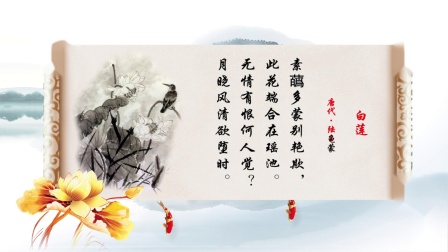 白莲
唐代·陆龟蒙
素蘤多蒙别艳欺，
此花端合在瑶池。
无情有恨何人觉？
月晓风清欲堕时。